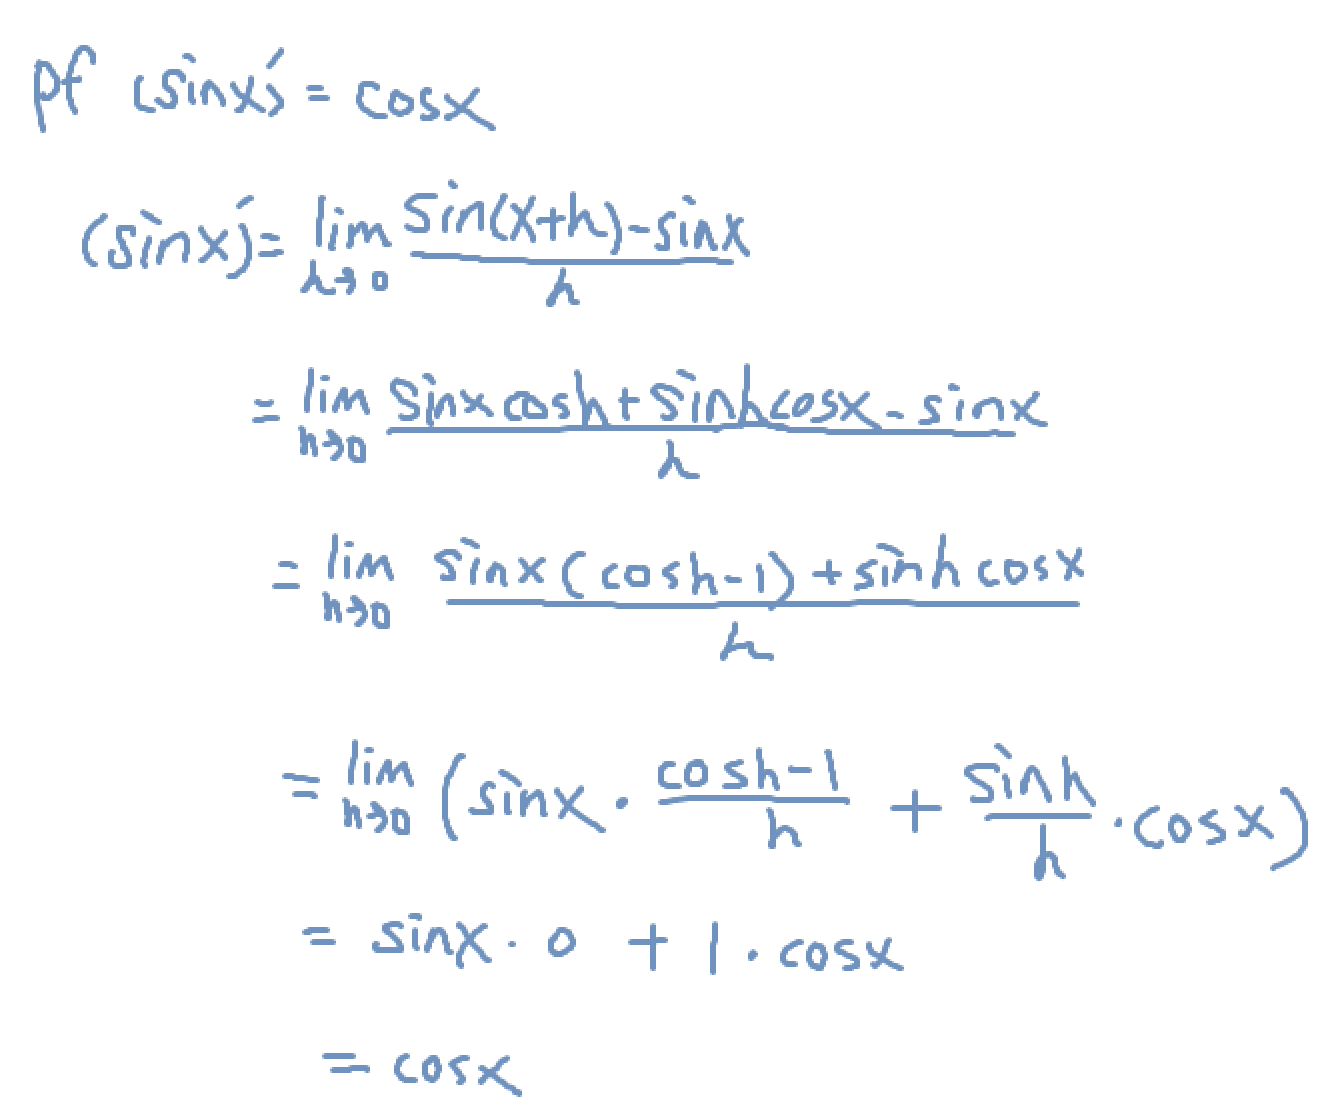 pf (sinx)' = cosx
(sinx)' = lim h→0 (sin(x+h)-sinx)/h
= lim h→0 (sinx cosh + sinh cosx - sinx)/h
= lim h→0 (sinx(cosh-1) + sinh cosx)/h
= lim h→0 (sinx · (cosh-1)/h + sinh/h · cosx)
= sinx · 0 + 1 · cosx
= cosx